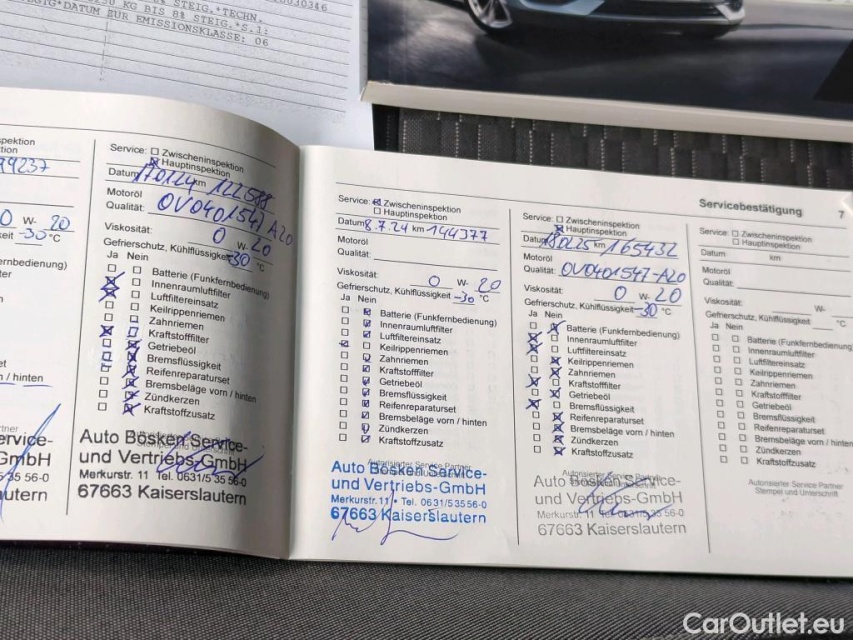 STEIG.*TECHN.
KG BIS 8% STEIG.*S.1:
*DATUM ZUR EMISSIONSKLASSE: 06
Servicebestätigung 7
99237
0 W- 20
-30 °C
/ hinten
Service: Zwischeninspektion
Hauptinspektion
Datum 17.01.24 km 122588
Motoröl
Qualität: OV0401547 A20
Viskosität: 0 W- 20
Gefrierschutz, Kühlflüssigkeit -30 °C
Ja Nein
Batterie (Funkfernbedienung)
Innenraumluftfilter
Luftfiltereinsatz
Keilrippenriemen
Zahnriemen
Kraftstofffilter
Getriebeöl
Bremsflüssigkeit
Reifenreparaturset
Bremsbeläge vorn / hinten
Zündkerzen
Kraftstoffzusatz
Auto Bösken Service-
und Vertriebs-GmbH
Merkurstr. 11 • Tel. 0631/5 35 56-0
67663 Kaiserslautern
Service: Zwischeninspektion
Hauptinspektion
Datum 8.7.24 km 144377
Motoröl
Qualität:
Viskosität: 0 W- 20
Gefrierschutz, Kühlflüssigkeit -30 °C
Ja Nein
Batterie (Funkfernbedienung)
Innenraumluftfilter
Luftfiltereinsatz
Keilrippenriemen
Zahnriemen
Kraftstofffilter
Getriebeöl
Bremsflüssigkeit
Reifenreparaturset
Bremsbeläge vorn / hinten
Zündkerzen
Kraftstoffzusatz
Autorisierter Service Partner
Auto Bösken Service-
und Vertriebs-GmbH
Merkurstr. 11 • Tel. 0631/5 35 56-0
67663 Kaiserslautern
Service: Zwischeninspektion
Hauptinspektion
Datum km 165432
Motoröl
Qualität: OV0401547-A20
Viskosität: 0 W- 20
Gefrierschutz, Kühlflüssigkeit -30 °C
Ja Nein
Batterie (Funkfernbedienung)
Innenraumluftfilter
Luftfiltereinsatz
Keilrippenriemen
Zahnriemen
Kraftstofffilter
Getriebeöl
Bremsflüssigkeit
Reifenreparaturset
Bremsbeläge vorn / hinten
Zündkerzen
Kraftstoffzusatz
Autorisierter Service Partner
Auto Bösken Service-
und Vertriebs-GmbH
Merkurstr. 11 Tel. 0631/5 35 56-0
67663 Kaiserslautern
Service: Zwischeninspektion
Hauptinspektion
Datum km
Motoröl
Qualität:
Viskosität: W-
Gefrierschutz, Kühlflüssigkeit °C
Ja Nein
Batterie (Funkfernbedienung
Innenraumluftfilter
Luftfiltereinsatz
Keilrippenriemen
Zahnriemen
Kraftstofffilter
Getriebeöl
Bremsflüssigkeit
Reifenreparaturset
Bremsbeläge vorn / hinten
Zündkerzen
Kraftstoffzusatz
Autorisierter Service Partner
Stempel und Unterschrift
CarOutlet.eu